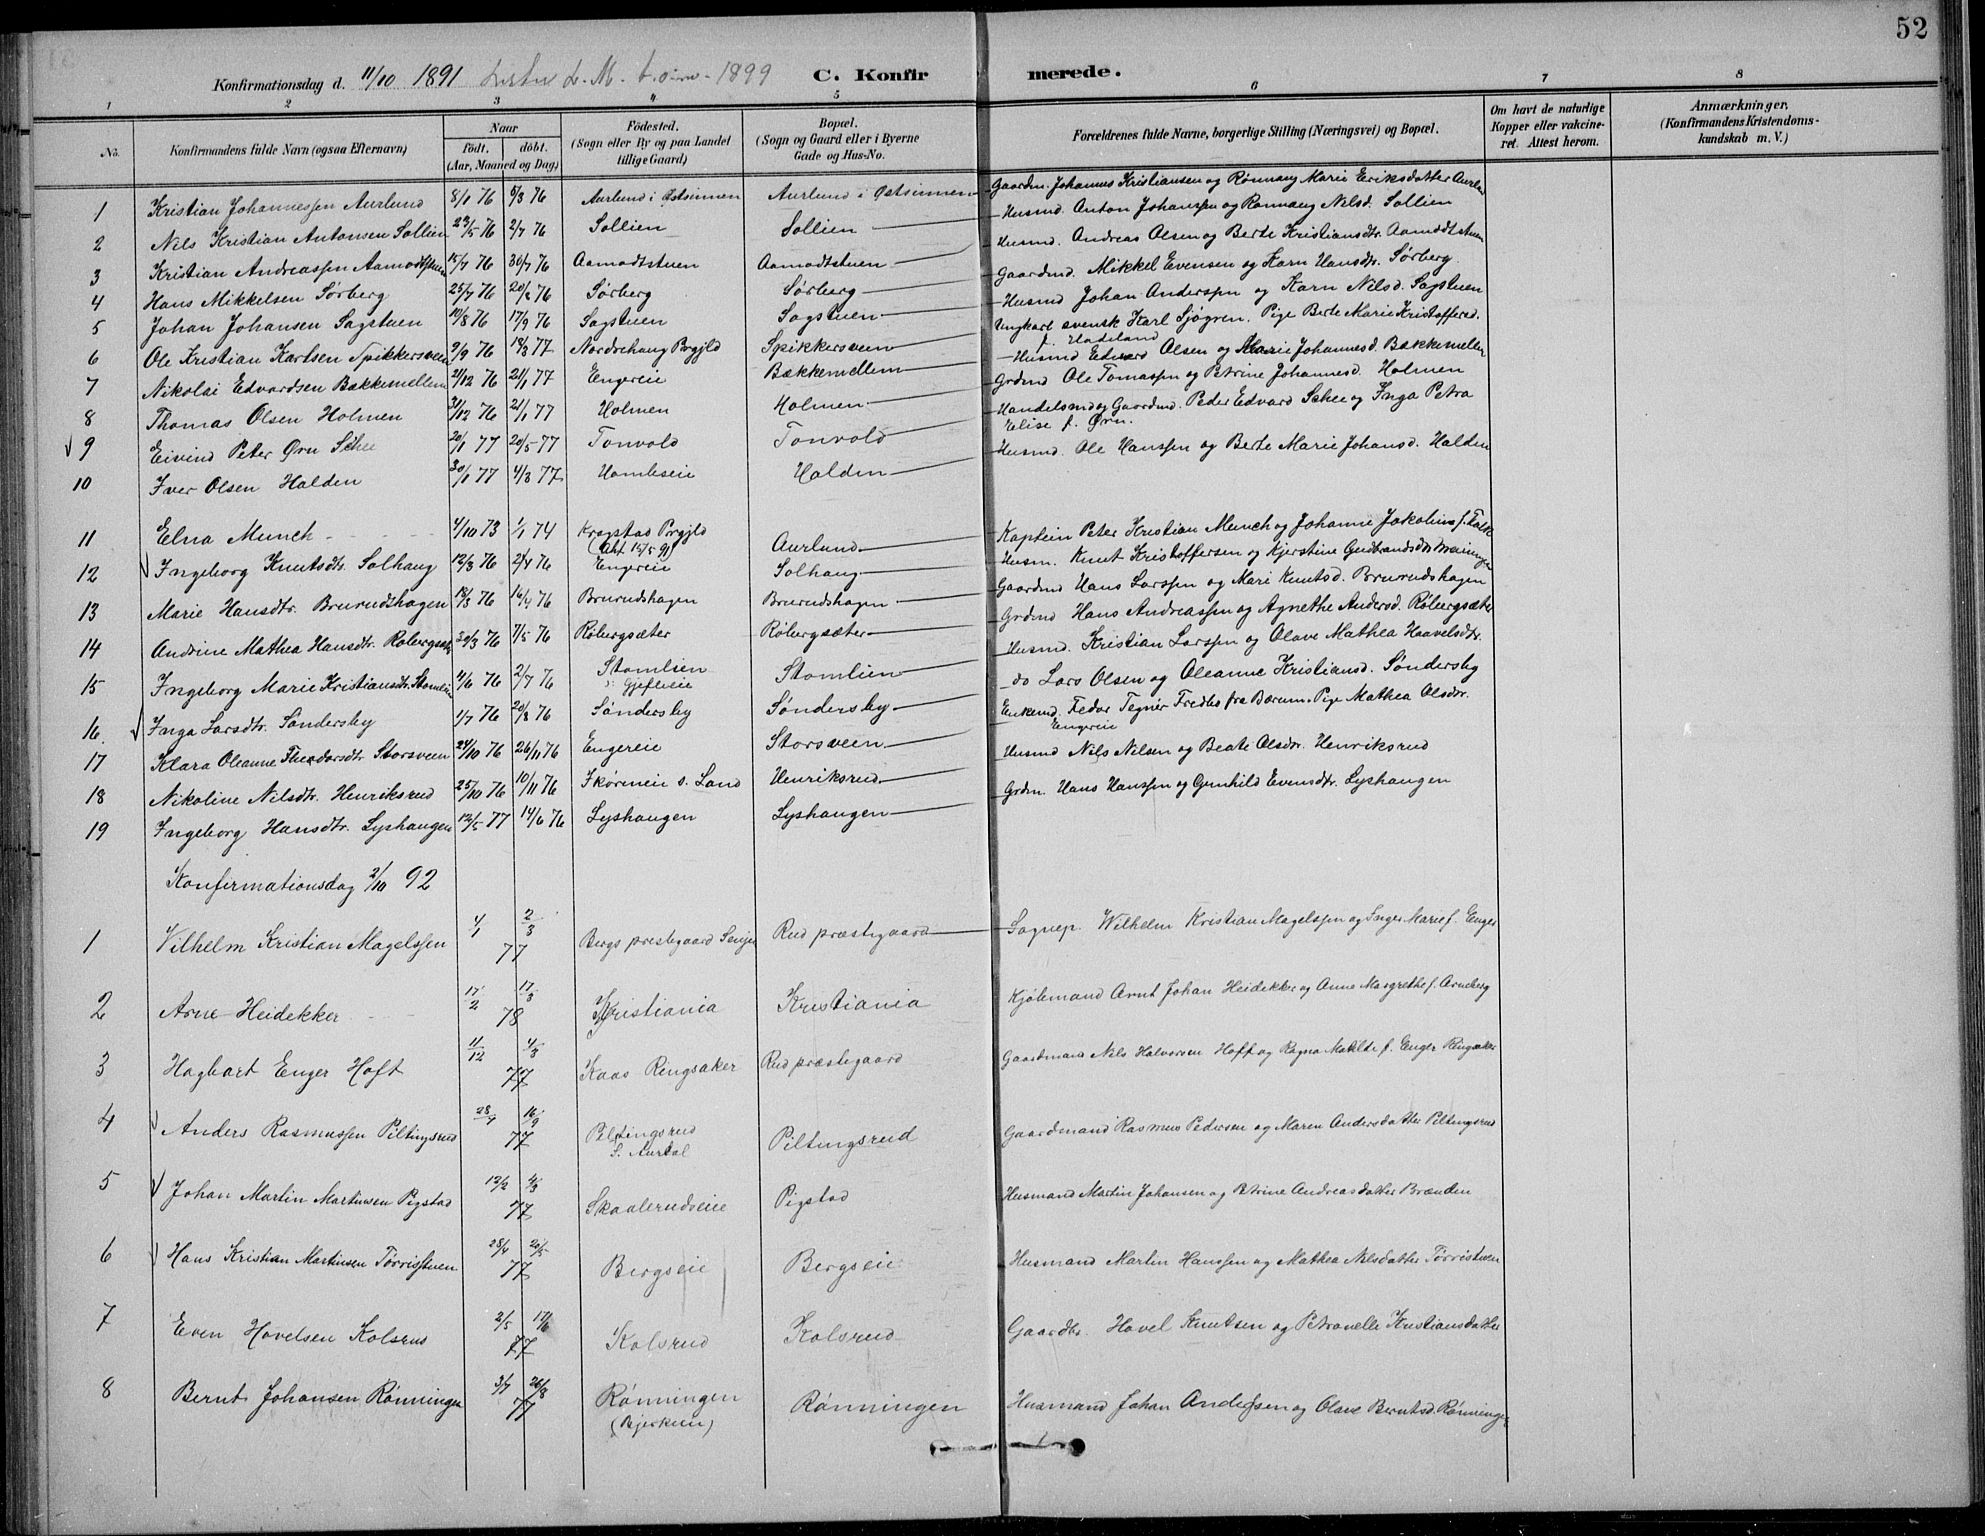 52
Konfirmationsdag d. 11/10 1891 1899 C. Konfirmerede.
1 2 3 4 5 6 7 8
No. Konfirmandens fulde Navn (ogsaa Efternavn) Naar Födt. döbt. (Aar, Maaned og Dag) Födested. (Sogn eller By og paa Landet tillige Gaard) Bopæl. (Sogn og Gaard eller i Byerne Gade og Hus-No. Forældrenes fulde Navne, borgerlige Stilling (Næringsvei) og Bopæl. Om havt de naturlige Kopper eller vakcineret. Attest herom. Anmærkninger, (Konfirmandens Kristendomskundskab m. V.)
1 Kristian Johannessen Aurlund 8/1 76 5/3 76 Aurlund i Østsinnen Aurlund i Østsinnen Gaardm. Johannes Kristiansen og Rønnaug Marie Eriksdatter Aurlund
2 Nils Kristian Antonsen Sollien 23/5 76 2/7 76 Sollien Sollien Husmd. Anton Johanssen og Rønnaug Nilsd. Sollien
3 Kristian Andreassen Aamodtstuen 15/7 76 30/7 76 Aamodtstuen Aamodtstuen Husmd. Andreas Olsen og Berte Kristiansdtr. Aamodtstuen
4 Hans Mikkelsen Sørberg 25/7 76 20/8 76 Sørberg Sørberg Gaardmd. Mikkel Evensen og Karn Hansdtr. Sørberg
5 Johan Johansen Sagstuen 10/8 76 17/9 76 Sagstuen Sagstuen Husmd Johan Anderssen og Karn Nilsd. Sagstuen
6 Ole Kristian Karlsen Spikkersveen 2/9 76 18/3 77 Nordrehaug Prgjld Spikkersveen Ungkarl svensk Karl Sjøgren. Pige Berte Marie Kristoffersd. f. Hadeland
7 Nikolai Edvardsen Bækkemellem 2/12 76 21/1 77 Engereie Bækkemellem Husmd Edvard Olsen og Marie Johannesd. Bækkemellem
8 Thomas Olsen Holmen 31/12 76 21/1 77 Holmen Holmen Grdmd Ole Tomassen og Petrine Johannesd. Holmen
9 Eivind Peter Ørn Schee 20/1 77 20/5 77 Tonvold Tonvold Handelsmd og Gaardmd. Peder Edvard Schee og Inga Petra Elise f. Ørn.
10 Iver Olsen Halden 30/1 77 4/3 77 Homleseie Halden Husmd. Ole Hanssen og Berte Marie Johansd. Halden
11 Elna Munch 4/10 73 1/1 74 Kragstad Prgjld (Att. 15/5 91) Aurlund Kaptein Peter Kristian Munch og Johanne Jakobine f. Falk
12 Ingeborg Knutsdtr. Solhaug 12/3 76 2/4 76 Engereie Solhaug Husm. Knut Kristoffersen og Kjerstine Gudbrandsdtr
13 Marie Hansdtr. Brurudshagen 18/3 76 16/4 76 Brurudshagen Brurudshagen Gaardmd Hans Larssen og Mari Knutsd. Brurudshagen
14 Andrine Mathea Hansdtr. Røbergsæter 30/3 76 7/5 76 Røbergsæter Røbergsæter Grdmd Hans Andreassen og Agnethe Andersd. Røbergsæter
15 Ingeborg Marie Kristiansdtr. Stomlien 11/6 76 2/7 76 Stomlien Gjefleeie Stomlien Husmd. Kristian Larssen og Olave Mathea Haavelsdtr.
16 Inga Larsdtr. Søndersby 1/7 76 20/8 76 Søndersby Søndersby do Lars Olsen og Oleanne Kristiansd. Søndersby
17 Klara Oleanne Theodorsdtr Storsveen 24/10 76 26/11 76 Engereie Storsveen Enkemd. Fedor Tegner Fredbo fra Bærum. Pige Mathea Olsdtr. Engereie
18 Nikoline Nilsdtr. Henriksrud 25/10 76 10/11 76 Skøieneie s. Land Henriksrud Husmd Nils Nilsen og Beate Olsdtr. Henriksrud
19 Ingeborg Hansdtr. Lyshaugen 12/5 77 14/6 76 Lyshaugen Lyshaugen Grdm. Hans Hanssen og Gunhild Evensdtr. Lyshaugen
Konfirmationsdag 2/10 92
1 Vilhelm Kristian Magelssen 4/1 2/3 77 Bergs prestegaard Senjen Rud præstegaard Sognep. Wilhelm Kristian Magelssen og Inger Marie f. Enger
2 Arne Heidekker 17/2 17/3 78 Kristiania Kristiania Kjølemand Arnt Johan Heidekker og Anne Margrethe f. Arneberg
3 Hagbart Enger Hoft 11/12 4/3 77 Kaas Ringsaker Rud præstegaard Gaardmand Nils Halvorsen Hoff og Ragna Matilde f. Enger Ringsaker
4 Anders Rasmussen Piltingsrud 28/4 16/9 77 Piltingsrud S. Aurdal Piltingsrud Gaardmand Rasmus Pedersen og Maren Andersdatter Piltingsrud
5 Johan Martin Martinsen Pigstad 12/2 4/3 77 Skaalerudseie Pigstad Husmand Martin Johansen og Petrine Andreasdatter Brænden
6 Hans Kristian Martinsen Tørrisstuen 28/4 20/5 77 Bergseie Bergseie Husmand Martin Hanssen og Mathea Nilsdatter Tørristuen
7 Even Hovelsen Kolsrud 2/5 17/6 77 Kolsrud Kolsrud Gaardbr. Hovel Knutsen og Petronelle Kristiansdatter
8 Bernt Johansen Rønningen 3/7 26/8 77 Rønningen (Bjerkeeie) Rønningen Husmand Johan Anderssen og Olave Berntsd. Rønningen